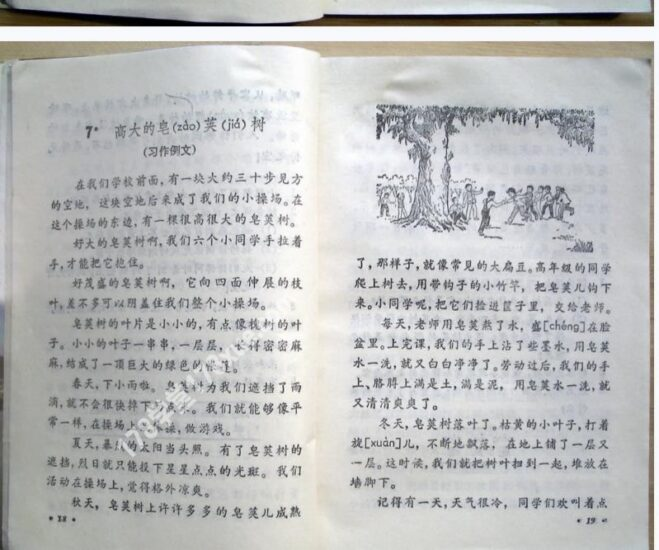 7* 高大的皂(zào)荚(jiá)树
(习作例文)
在我们学校前面,有一块大约三十步见方
的空地,这块空地后来成了我们的小操场。在
这个操场的东边,有一棵很高很大的皂荚树。
好大的皂荚树啊,我们六个小同学手拉着
手,才能把它抱住。
好茂盛的皂荚树啊,它向四面伸展的枝
叶,差不多可以阴盖住我们整个小操场。
皂荚树的叶片是小小的,有点像槐树的叶
子。小小的叶子一串串,一层层,长得密密麻
麻,结成了一顶巨大的绿色的帐篷。
春天,下小雨啦。皂荚树为我们遮挡了雨
滴,就不会很快掉下
。我们就能够像平
常一样,在操场上
,做游戏。
夏天,
太阳当头照。有了皂荚树的
遮挡,烈日就只能投下星星点点的光斑。我们
活动在操场上,觉得格外凉爽。
秋天,皂荚树上许许多多的皂荚儿成熟
· 18 ·
了,那样子,就像常见的大扁豆。高年级的同学
爬上树去,用带钩子的小竹竿,把皂荚儿钩下
来。小同学呢,把它们捡进筐子里,交给老师。
每天,老师用皂荚熬了水,盛[chéng]在脸
盆里。上完课,我们的手上沾了些墨水,用皂荚
水一洗,就又白白净净了。劳动过后,我们的手
上,胳膊上满是土,满是泥,用皂荚水一洗,就
又清清爽爽了。
冬天,皂荚树落叶了。枯黄的小叶子,打着
旋[xuàn]儿,不断地飘落,在地上铺了一层又
一层。这时候,我们就把树叶扫到一起,堆放在
墙脚下。
记得有一天,天气很冷,同学们欢叫着点
· 19 ·